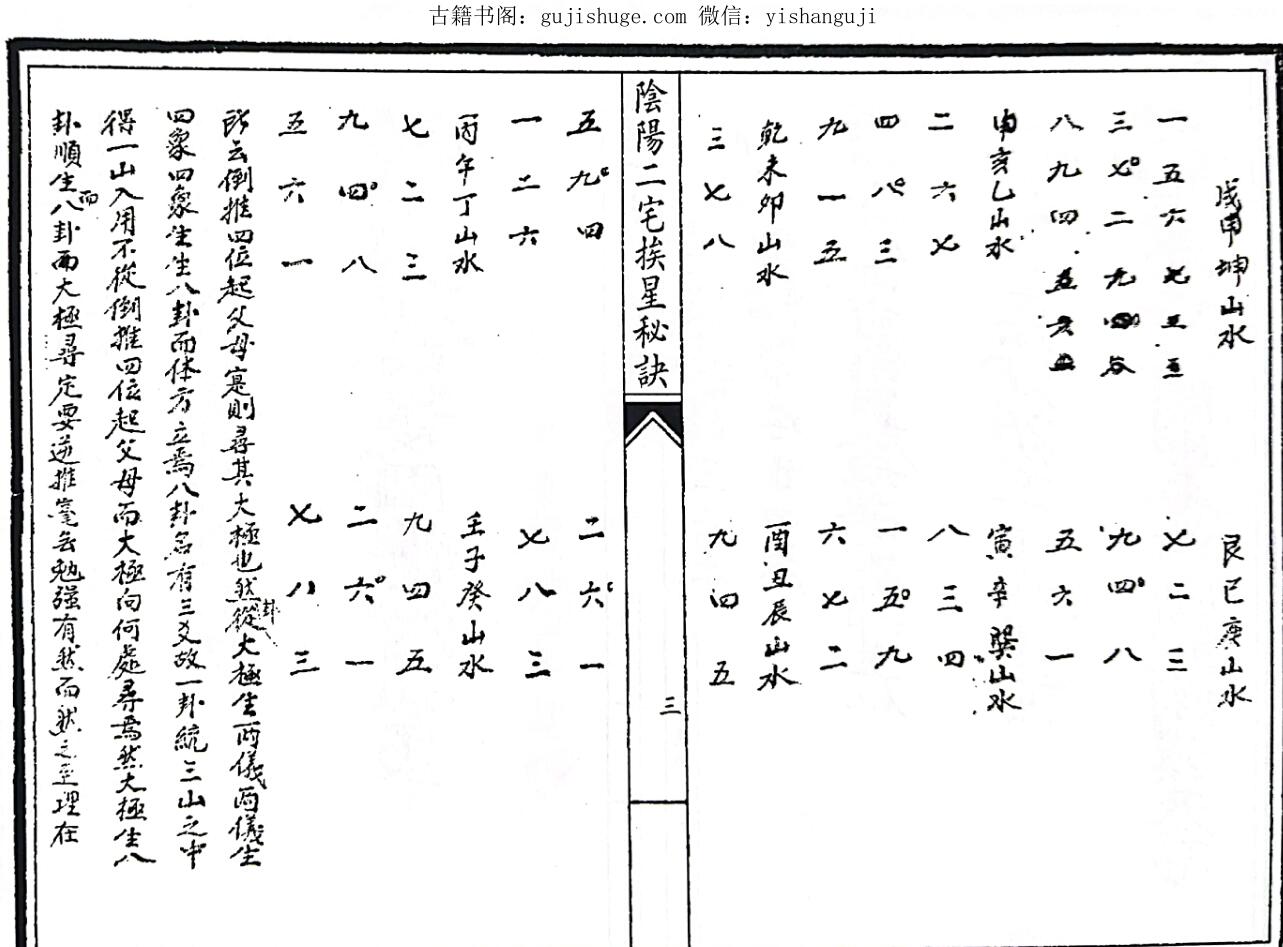 古籍书阁：gujishuge.com 微信：yishanguji
戌甲坤山水
一 五 六
三 七 二 九 四
八 九 四 五 六
申亥乙山水
二 六 七
四 八 三
九 一 五
乾未卯山水
三 七 八
艮巳庚山水
七 二 三
九 四 八
五 六 一
寅辛巽山水
八 三 四
一 五 九
六 七 二
酉丑辰山水
九 四 五
陰陽二宅挨星秘訣
三
五 九 四
一 二 六
丙午丁山水
七 二 三
九 四 八
五 六 一
二 六 一
七 八 三
壬子癸山水
九 四 五
二 六 一
七 八 三
所云倒推四位起父母寔則尋其大極也然從卦大極生兩儀兩儀生
四象四象生生八卦而体方立焉八卦各有三爻故一卦統三山之中
得一山入用不從倒推四位起父母而大極向何處尋焉然大極生八
卦順生而八卦而大極尋定要逆推毫无勉强有然而然之至理在